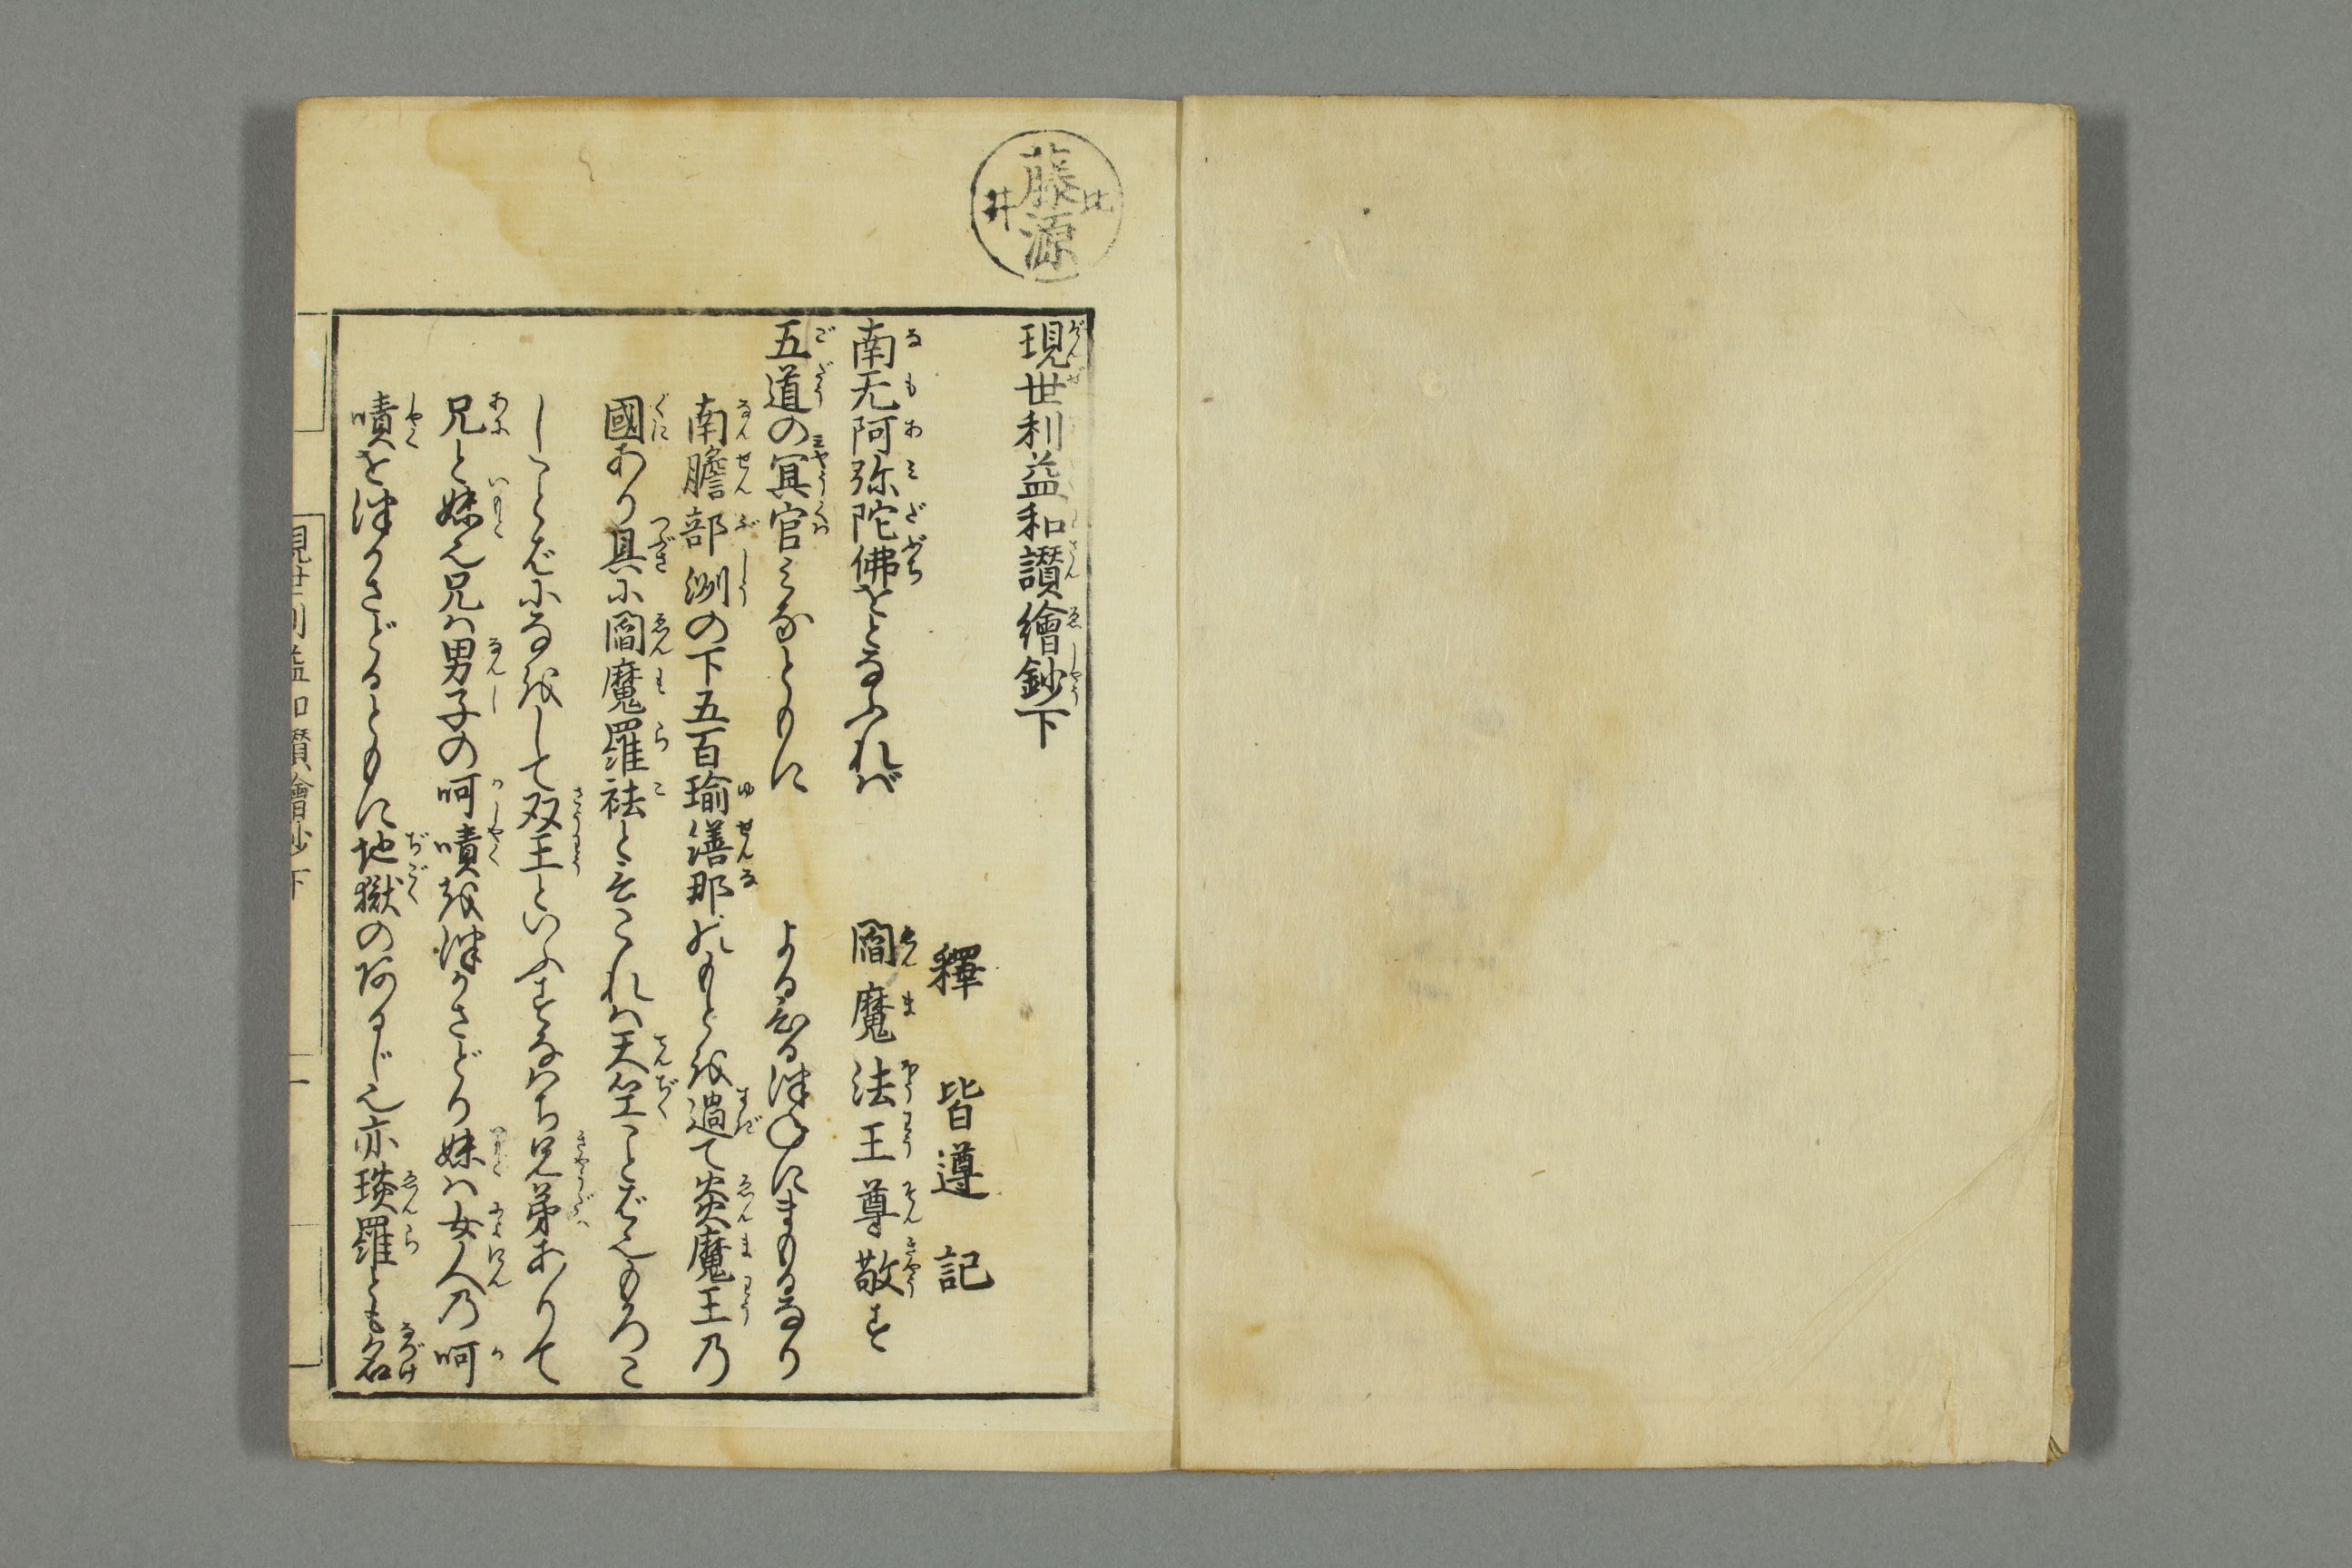 藤源
比
井
現世利益和讃繪鈔下
釋 皆遵 記
南无阿弥陀佛をとなふれば 閻魔法王尊敬す
五道の冥官みなともに よるひるつねにまもるなり
南贍部洲の下五百瑜繕那のもとを過て炎魔王乃
國あり具に閻魔羅祛と云これは天竺ことばえもろこ
しことばになをして双王といふすなはち兄弟ありて
兄と妹え兄は男子の呵嘖をつかさどり妹は女人乃呵
嘖をつかさどるともに地獄のあるじえ亦琰羅とも名
現世利益和讃繪鈔下 一